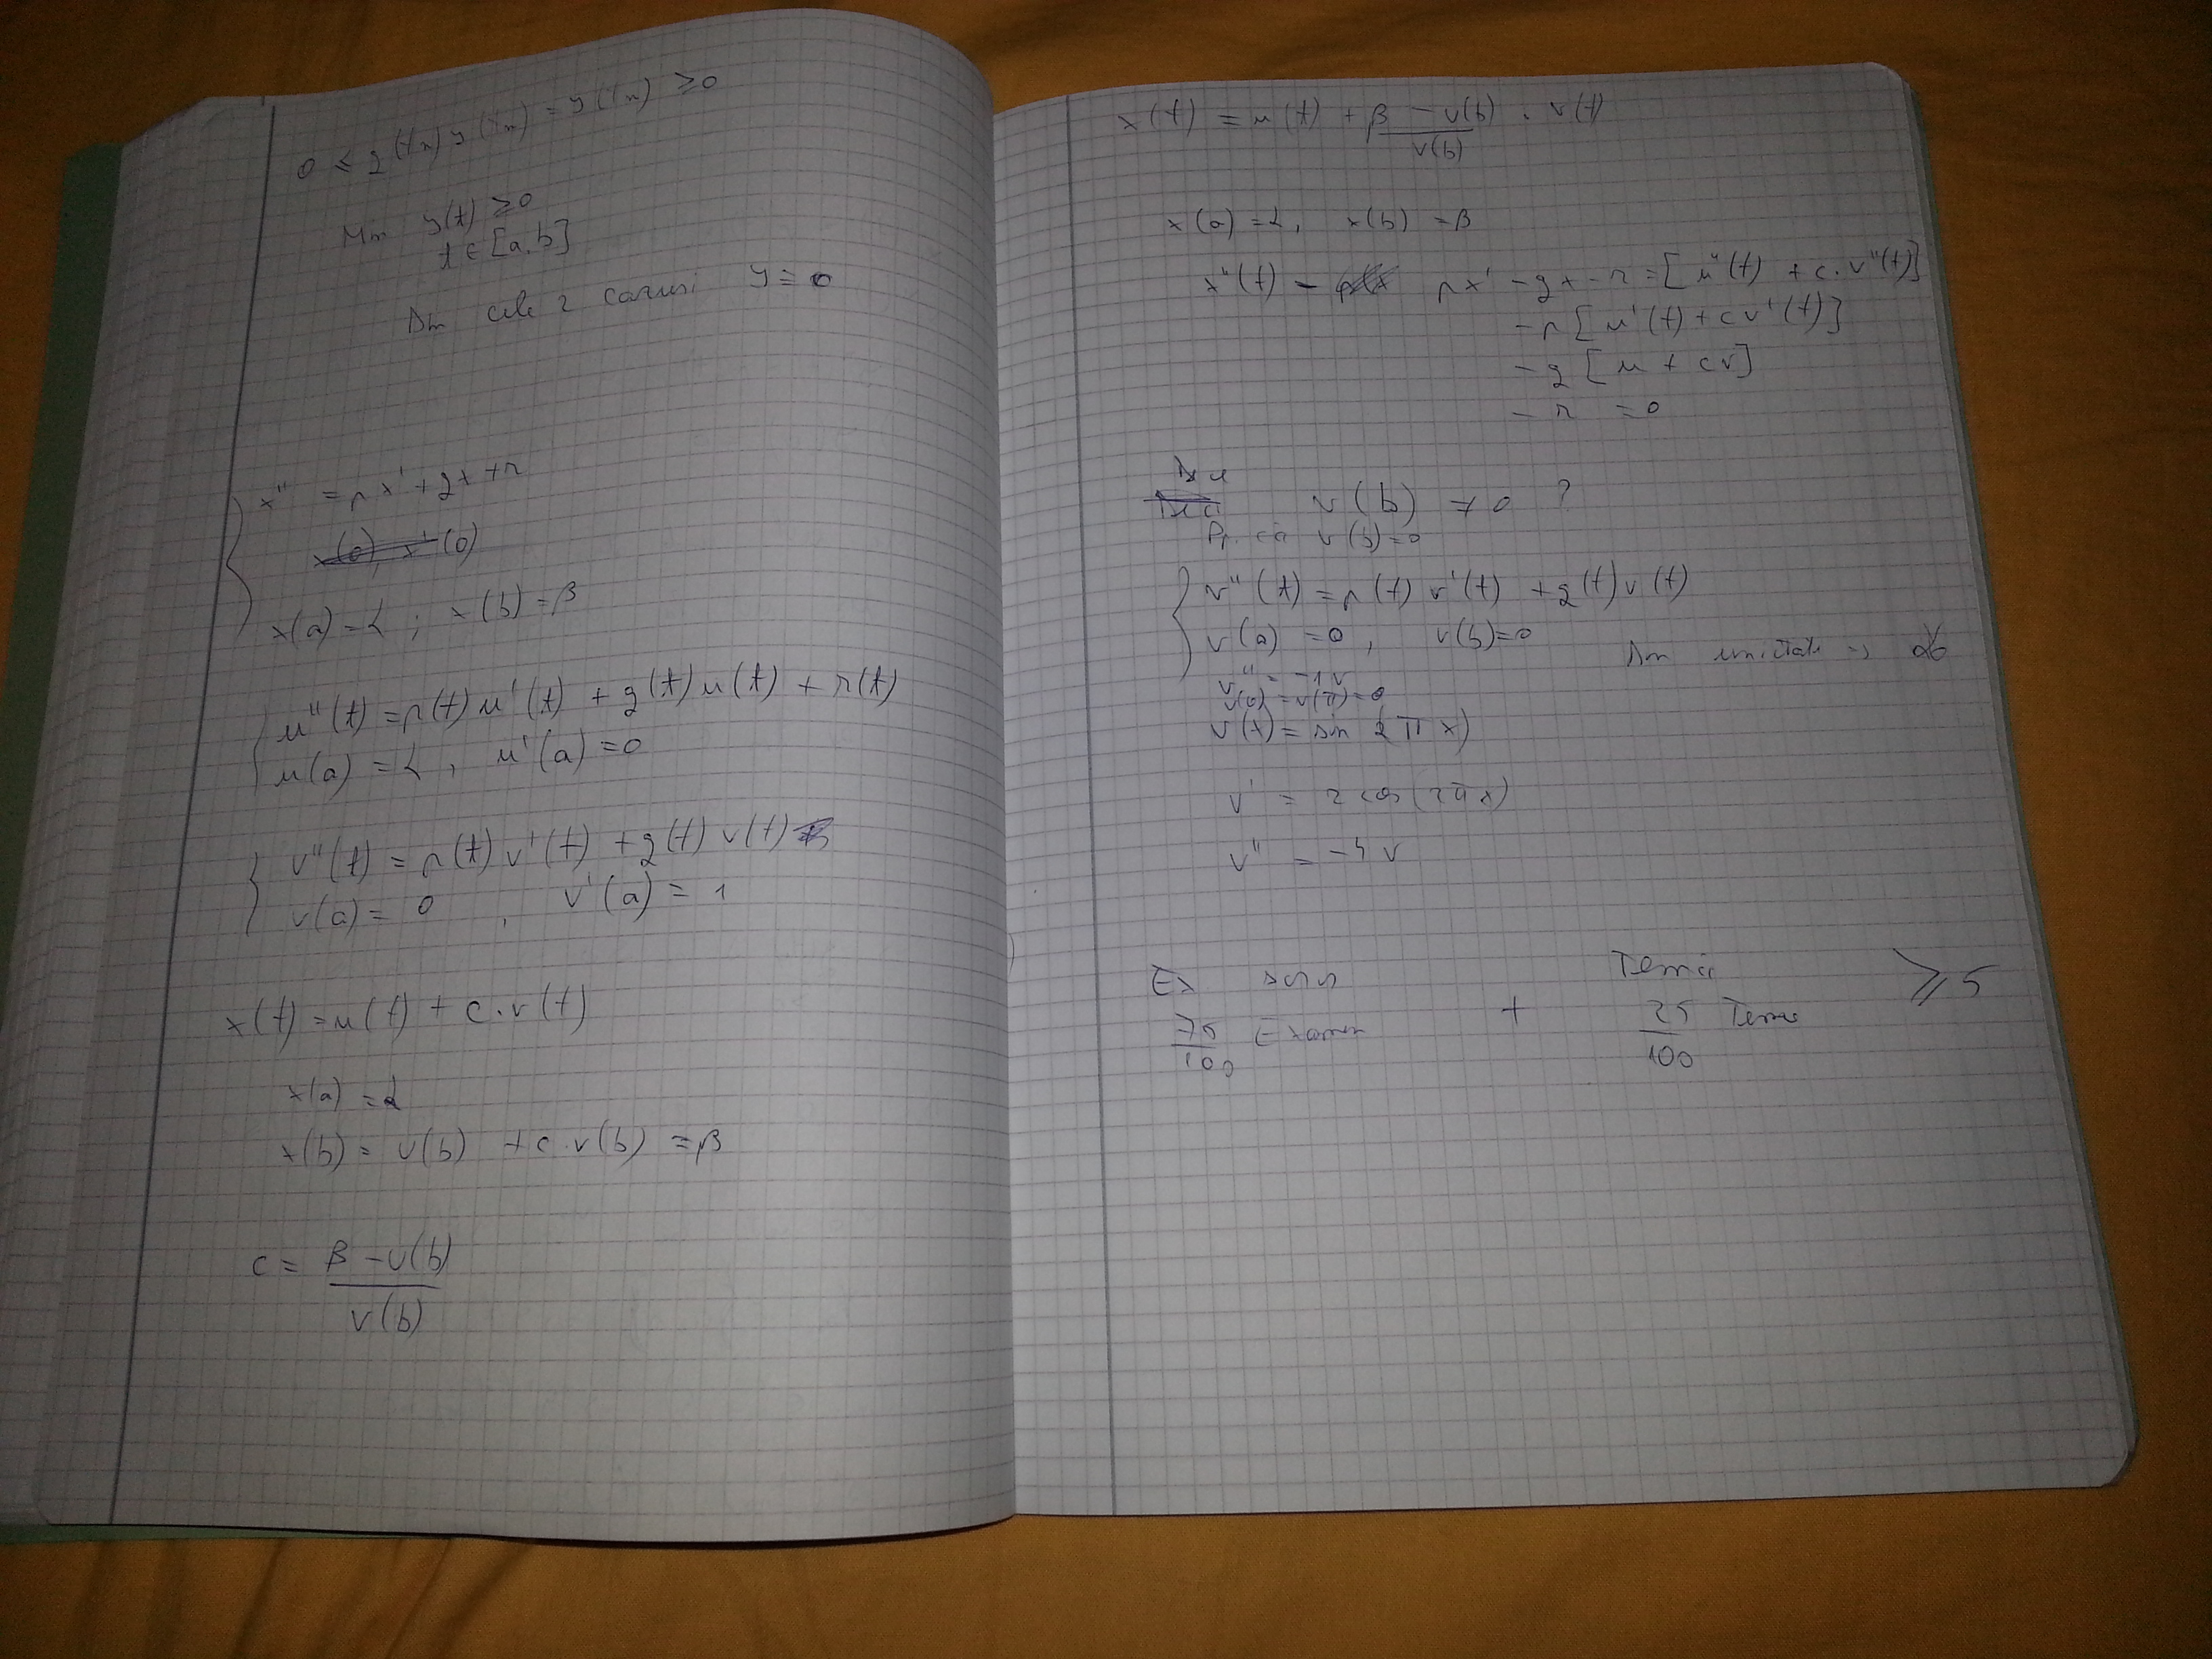 0 ≤ q(t_m) y(t_m) = y''(t_m) ≥ 0
Min y(t) ≥ 0
t ∈ [a, b]
Din cele 2 cazuri y ≡ 0
x'' = px' + qx + r
x(0), x'(0)
x(a) = α ; x(b) = β
u''(t) = p(t) u'(t) + q(t) u(t) + r(t)
u(a) = α , u'(a) = 0
v''(t) = p(t) v'(t) + q(t) v(t)
v(a) = 0 , v'(a) = 1
x(t) = u(t) + c · v(t)
x(a) = α
x(b) = u(b) + c · v(b) = β
c = (β - u(b)) / v(b)
x(t) = u(t) + (β - u(b)) / v(b) · v(t)
x(a) = α, x(b) = β
x''(t) - px' - qx - r = [u''(t) + c · v''(t)]
- p [u'(t) + c v'(t)]
- q [u + cv]
- r = 0
v(b) ≠ 0 ?
Pp. că v(b) = 0
v''(t) = p(t) v'(t) + q(t) v(t)
v(a) = 0 , v(b) = 0
Din unicitate =>
v'' = -1v
v(0) = v(π) = 0
v(t) = sin (2πx)
v' = 2 cos (2πx)
v'' = -4v
Ex scris + Temă ≥ 5
75/100 Examen 25/100 Teme